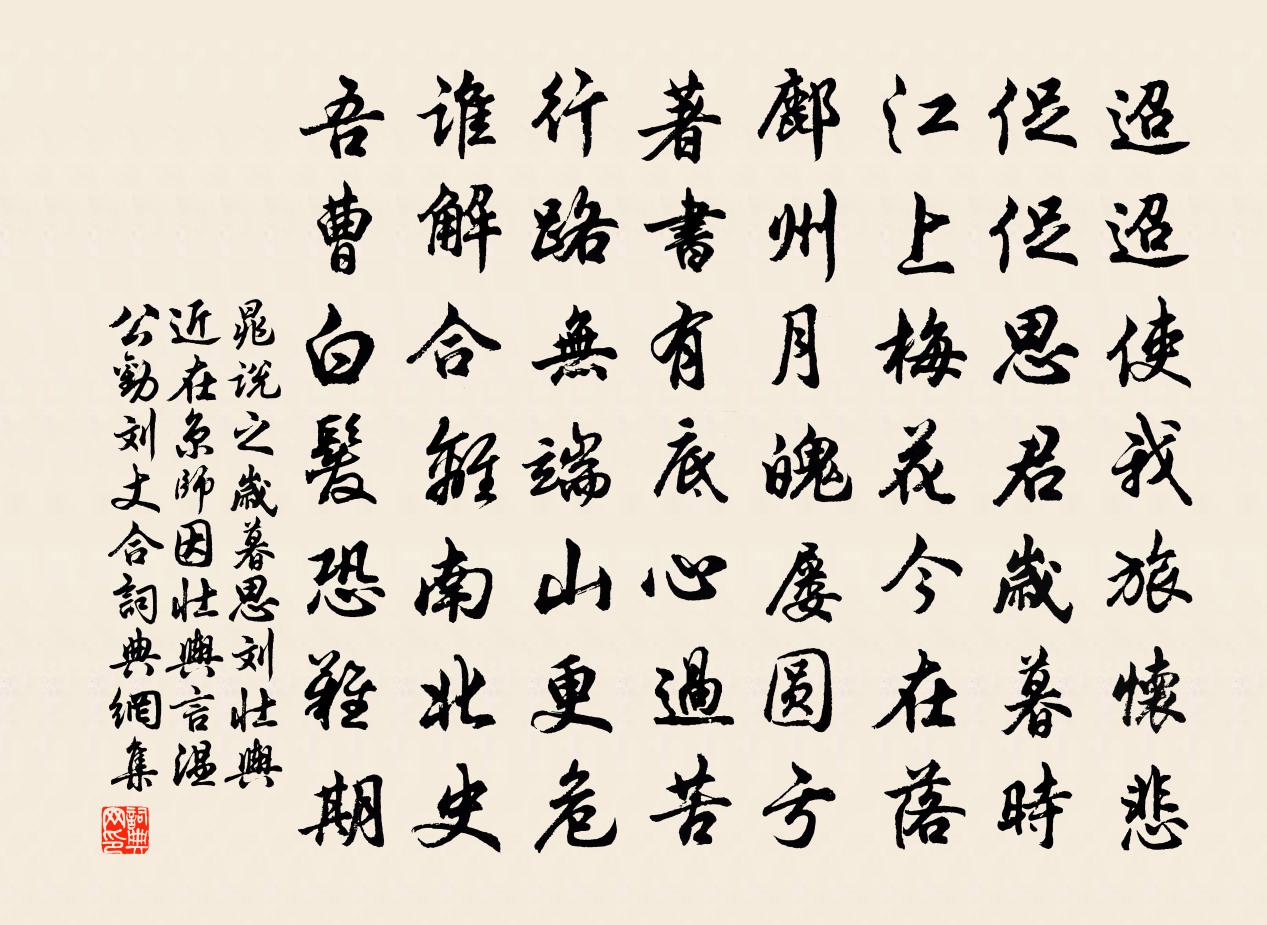 迢迢使我旅懷悲
促促思君歲暮時
江上梅花今在落
鄜州月魄屡圆亏
著書有底心過苦
行路無端山更危
谁解合離南北史
吾曹白髮恐難期
晁说之歲暮思刘壮輿
近在京師因壮輿言温
公勤刘丈合詞典網集
詞典網印